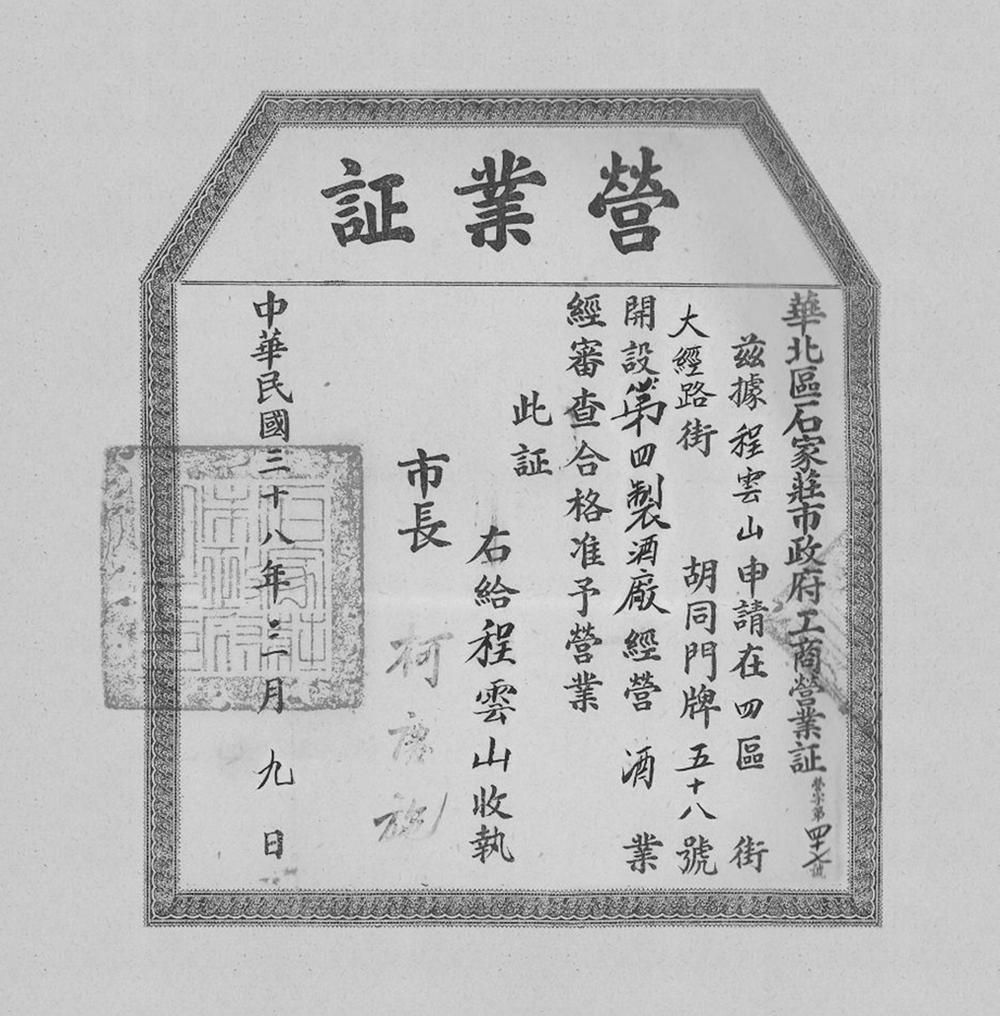 營業証
華北區石家莊市政府工商營業証營字第四十七號
兹據程雲山申請在四區 街
大經路街 胡同門牌五十八號
開設第四製酒廠經營 酒 業
經審查合格准予營業
此証
右給程雲山收執
市長 柯
中華民國三十八年 二月 九 日